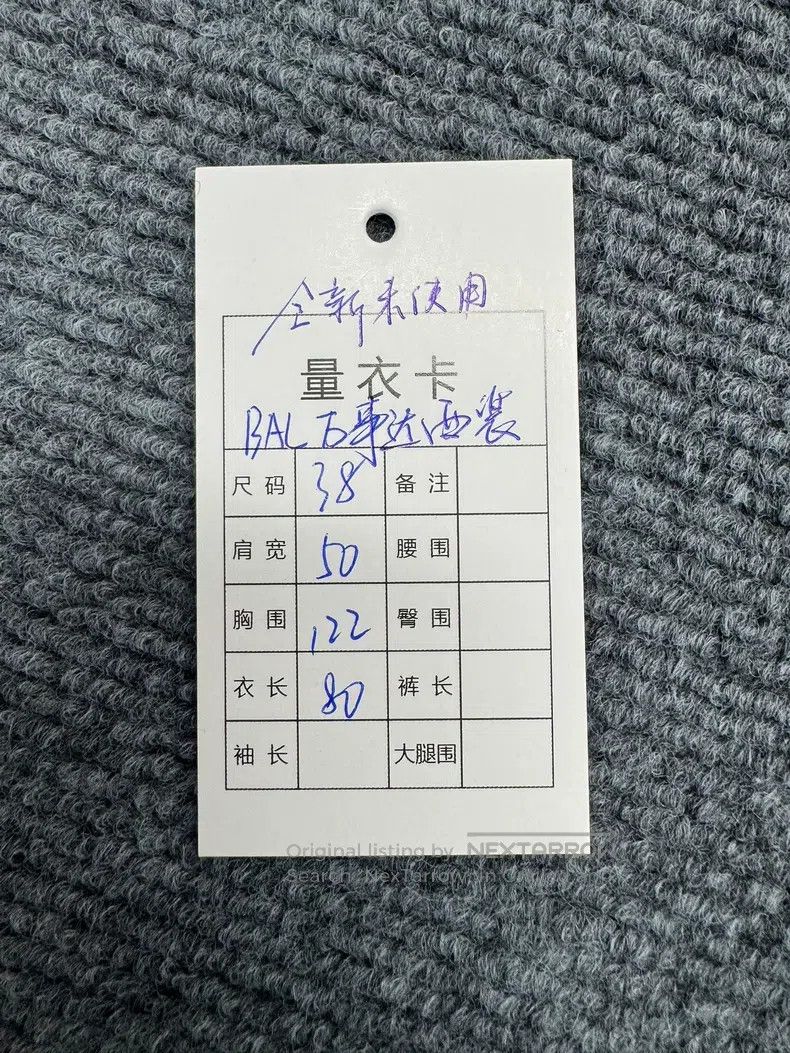 全新未使用
量衣卡
BAL 万事达西装
尺码 38 备注
肩宽 50 腰围
胸围 122 臀围
衣长 80 裤长
袖长 大腿围
Original listing by NEXTARRO
Search